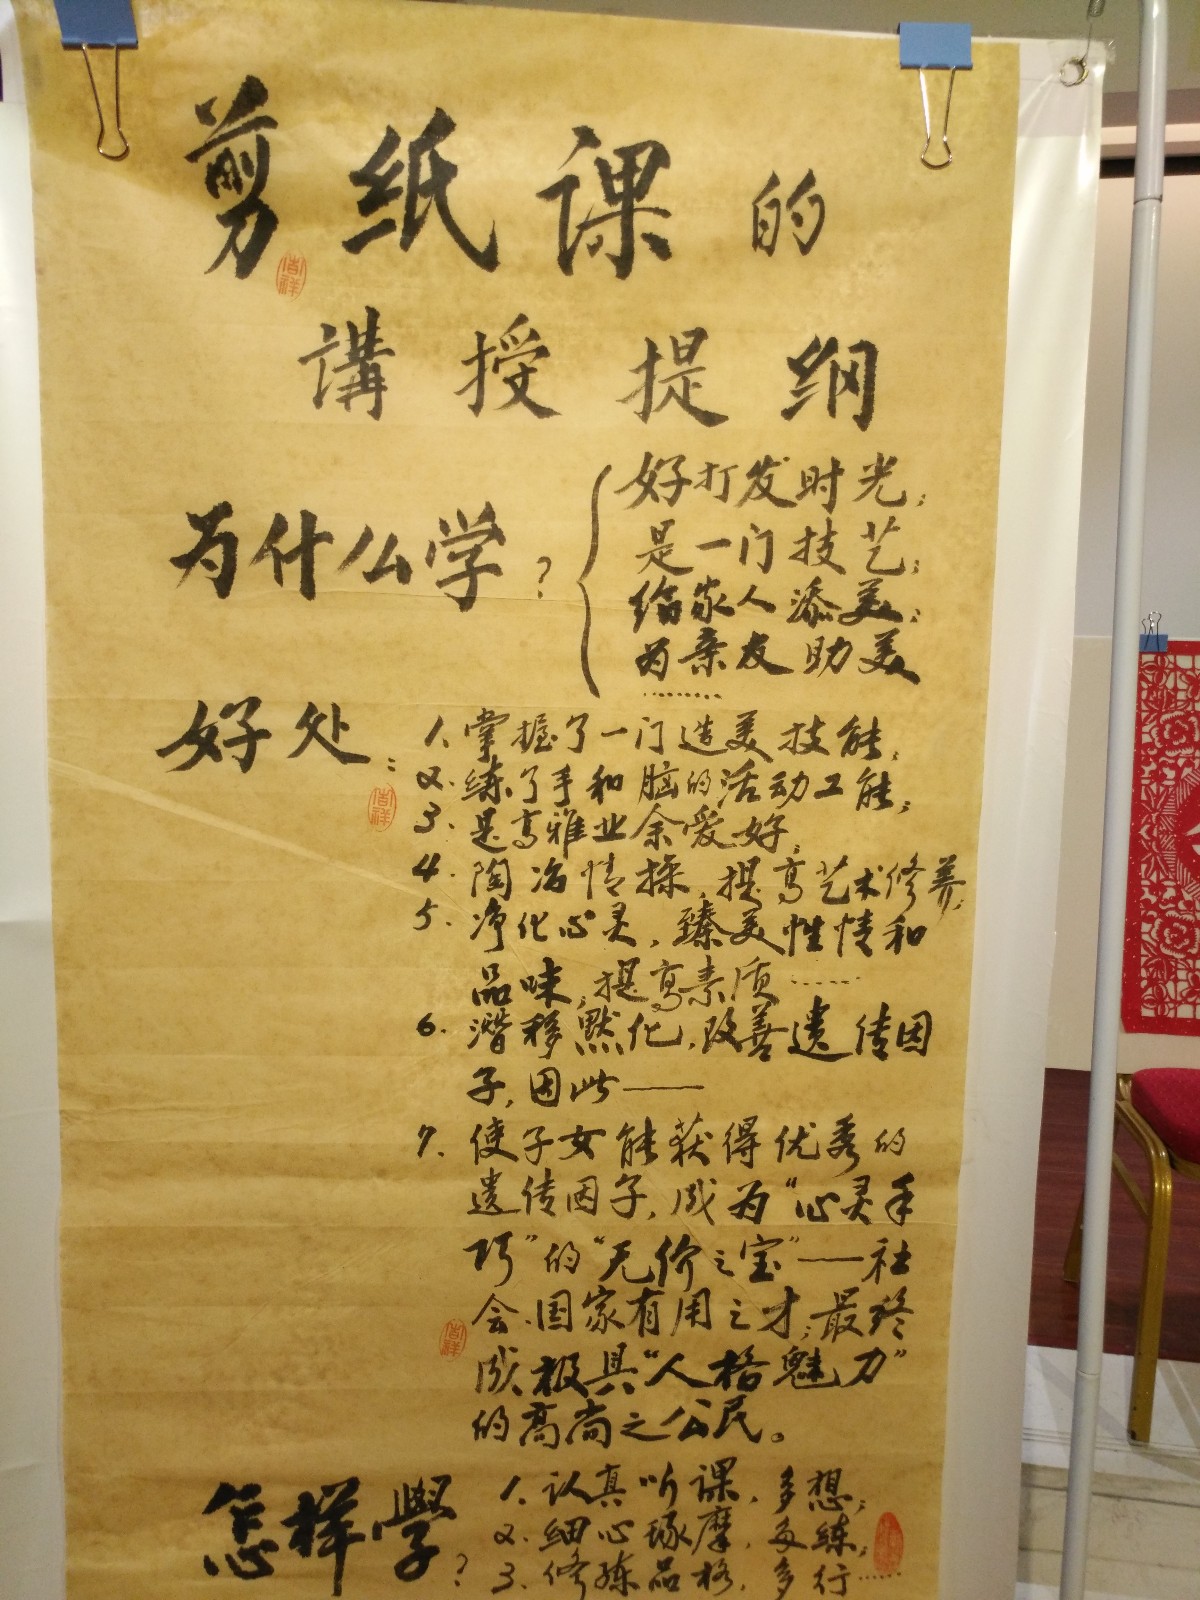 剪纸课的
吉祥
講授提纲
为什么学?
好打发时光;
是一门技艺;
给家人添美;
为亲友助美
………
好处:
吉祥
1.掌握了一门造美技能;
2.练了手和脑的活动工能;
3.是高雅业余爱好;
4.陶冶情操,提高艺术修养;
5.净化心灵,臻美性情和
品味,提高素质……
6.潜移默化,改善遗传因
子,因此——
7.使子女能获得优秀的
遗传因子,成为“心灵手
巧”的“无价之宝”——社
会、国家有用之才;最终
吉祥
成极具“人格魅力”
的高尚之公民。
怎样學?
1.认真听课,多想;
2.细心琢摩,多练;
3.修练品格,多行……